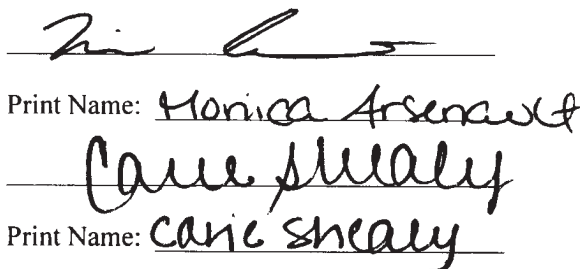 Print Name: Monica Arsenault
Carie Shealy
Print Name: Carie Shealy